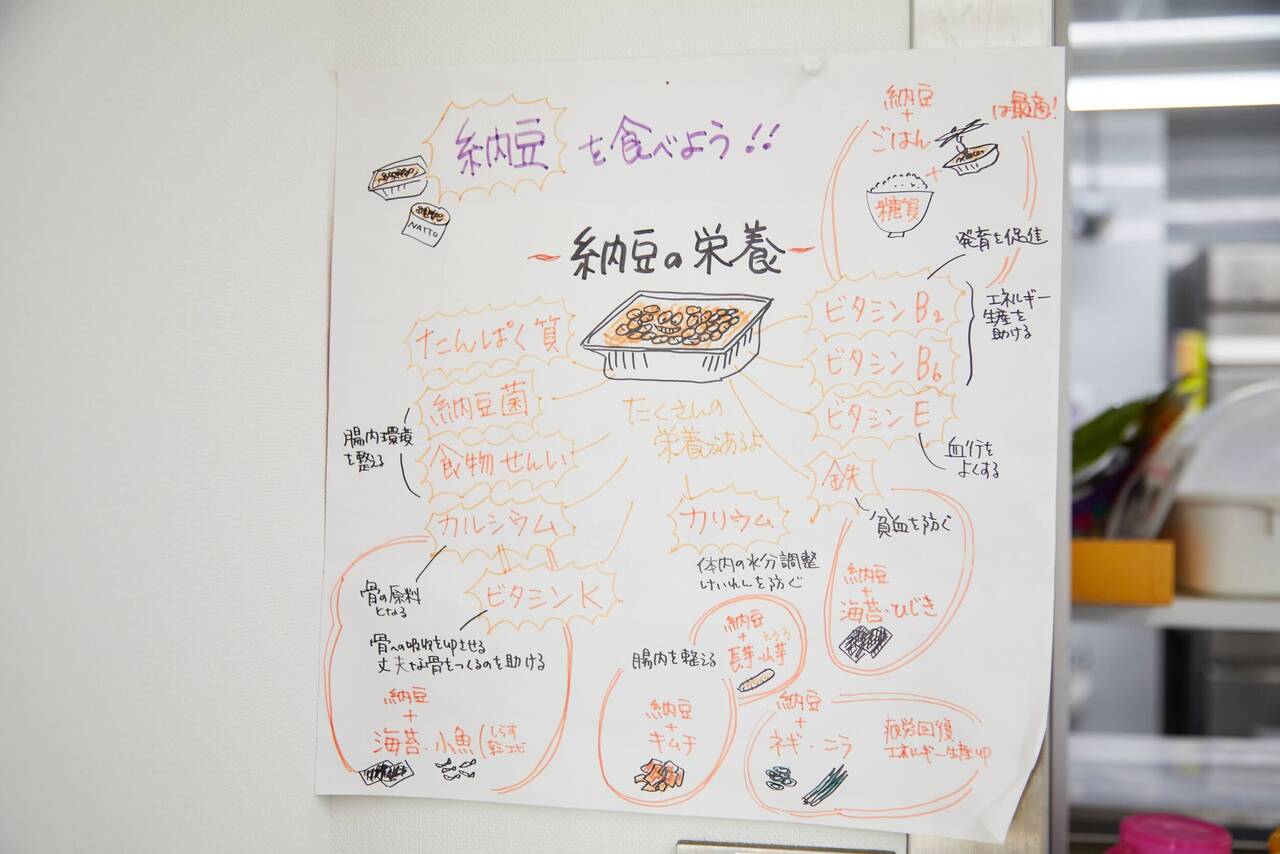 納豆を食べよう!!
NATTO
納豆
+
ごはん
は最適!
+
糖質
納豆の栄養
たんぱく質
納豆菌
食物せんい
腸内環境
を整える
カルシウム
骨の原料
となる
ビタミンK
骨への吸収をUPさせる
丈夫な骨をつくるのを助ける
納豆
+
海苔・小魚(しらす
干しエビ
たくさんの
栄養があるよ
発育を促進
ビタミンB2
ビタミンB6
エネルギー
生産を
助ける
ビタミンE
血行を
よくする
鉄
貧血を防ぐ
納豆
+
海苔・ひじき
カリウム
体内の水分調整
けいれんを防ぐ
納豆
+
とろろ
長芋・山芋
腸内を整える
納豆
+
キムチ
納豆
+
ネギ・ニラ
疲労回復
エネルギー生産UP